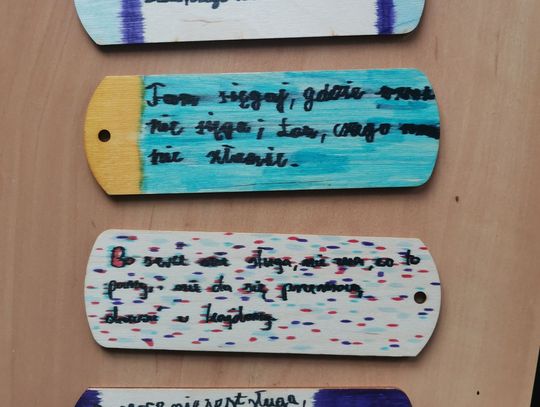 Tam sięgaj, gdzie wzrok
nie sięga; łam, czego rozum
nie złamie.
Bo serce nie sługa, nie zna, co to
pany, i nie da się przemocą
okuwać w kajdany
serce nie jest sługa,